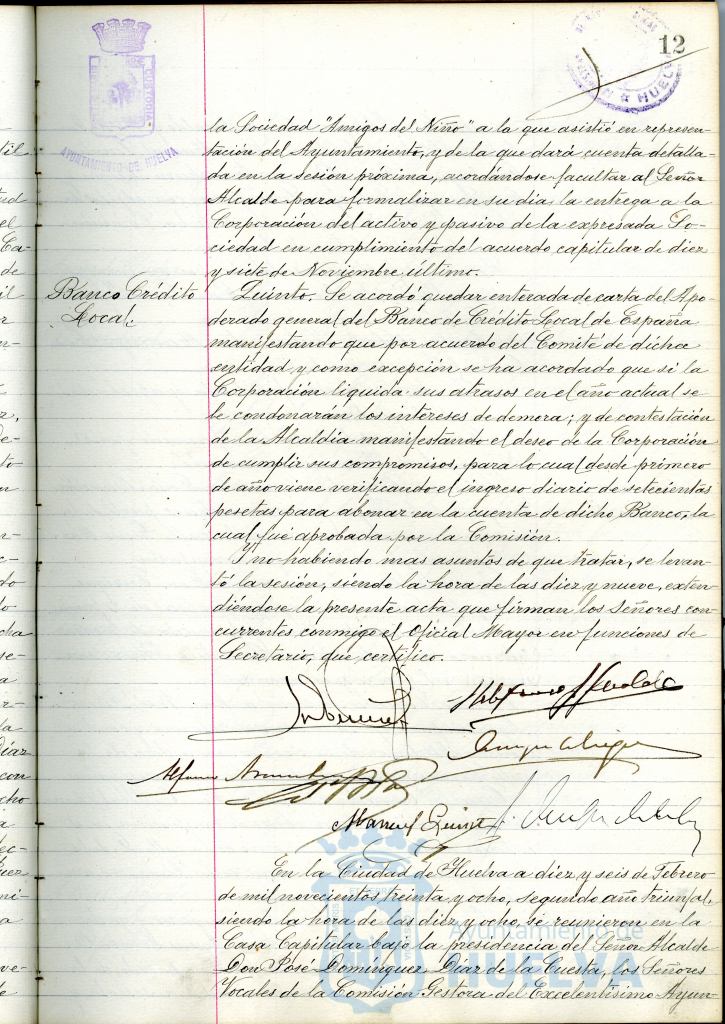 12
AYUNTAMIENTO DE HUELVA
CUSTODIA
HUELVA
la Sociedad "Amigos del Niño" a la que asistió en represen-
tación del Ayuntamiento, y de la que dará cuenta detalla-
da en la sesión próxima, acordándose facultar al Señor
Alcalde para formalizar en su dia, la entrega a la
Corporación del activo y pasivo de la expresada So-
ciedad en cumplimiento del acuerdo capitular de diez
y siete de Noviembre último.
Banco Crédito
Local.
Quinto. Se acordó quedar enterada de carta del Apo-
derado general del Banco de Crédito Local de España
manifestando que por acuerdo del Comité de dicha
entidad y como excepción se ha acordado que si la
Corporación liquida sus atrasos en el año actual se
le condonarán los intereses de demora; y de contestación
de la Alcaldía manifestando el deseo de la Corporación
de cumplir sus compromisos, para lo cual desde primero
de año viene verificando el ingreso diario de setecientas
pesetas para abonar en la cuenta de dicho Banco, la
cual fué aprobada por la Comisión.
Y no habiendo mas asuntos de que tratar, se levan-
tó la sesión, siendo la hora de las diez y nueve, exten-
diéndose la presente acta que firman los Señores con-
currentes conmigo el Oficial Mayor en funciones de
Secretario, que certifico.
Manuel
En la Ciudad de Huelva a diez y seis de Febrero
de mil novecientos treinta y ocho, segundo año triunfal,
siendo la hora de las diez y ocho, se reunieron en la
Casa Capitular bajo la presidencia del Señor Alcalde
Don José Domínguez Diaz de la Cuesta, los Señores
Vocales de la Comisión Gestora del Excelentísimo Ayun-
Ayuntamiento de
HUELVA